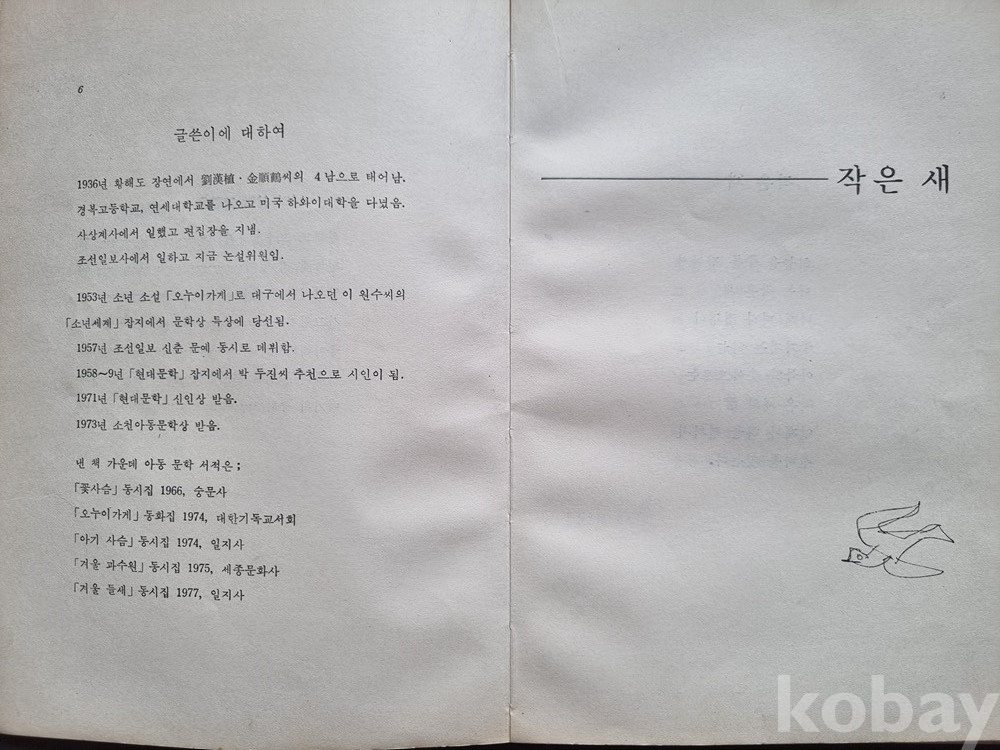 6
글쓴이에 대하여
1936년 황해도 장연에서 劉漢植·金順鶴씨의 4남으로 태어남.
경복고등학교, 연세대학교를 나오고 미국 하와이대학을 다녔음.
사상계사에서 일했고 편집장을 지냄.
조선일보사에서 일하고 지금 논설위원임.
1953년 소년 소설 「오누이가게」로 대구에서 나오던 이 원수씨의
「소년세계」 잡지에서 문학상 특상에 당선됨.
1957년 조선일보 신춘 문예 동시로 데뷔함.
1958~9년 「현대문학」 잡지에서 박 두진씨 추천으로 시인이 됨.
1971년 「현대문학」 신인상 받음.
1973년 소천아동문학상 받음.
낸 책 가운데 아동 문학 서적은;
「꽃사슴」 동시집 1966, 숭문사
「오누이가게」 동화집 1974, 대한기독교서회
「아기 사슴」 동시집 1974, 일지사
「겨울 과수원」 동시집 1975, 세종문화사
「겨울 들새」 동시집 1977, 일지사
작은 새
kobay